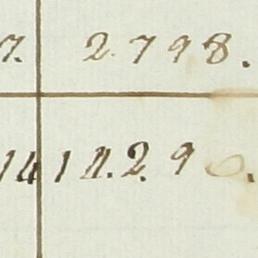 7. 2.798.
14 14.290.